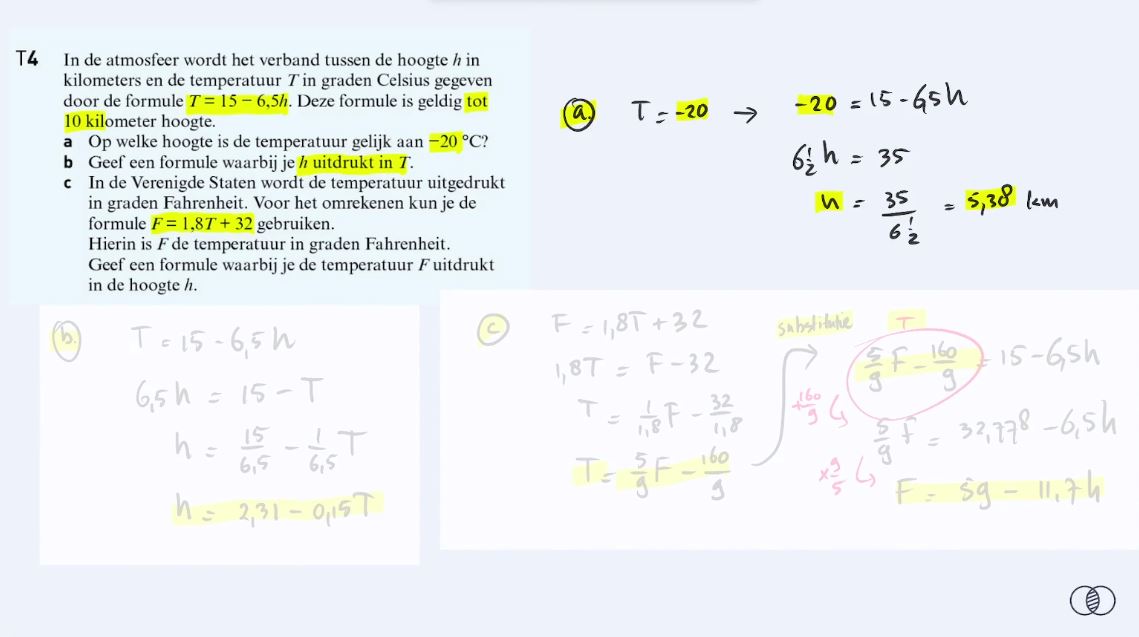 T4 In de atmosfeer wordt het verband tussen de hoogte h in
kilometers en de temperatuur T in graden Celsius gegeven
door de formule T = 15 − 6,5h. Deze formule is geldig tot
10 kilometer hoogte.
a Op welke hoogte is de temperatuur gelijk aan −20 °C?
b Geef een formule waarbij je h uitdrukt in T.
c In de Verenigde Staten wordt de temperatuur uitgedrukt
in graden Fahrenheit. Voor het omrekenen kun je de
formule F = 1,8T + 32 gebruiken.
Hierin is F de temperatuur in graden Fahrenheit.
Geef een formule waarbij je de temperatuur F uitdrukt
in de hoogte h.
a. T = -20 → -20 = 15 - 6,5h
6 1/2 h = 35
h = 35 / 6 1/2 = 5,38 km
b. T = 15 - 6,5h
6,5h = 15 - T
h = 15/6,5 - 1/6,5 T
h = 2,31 - 0,15T
c F = 1,8T + 32
1,8T = F - 32
T = 1/1,8 F - 32/1,8
T = 5/9 F - 160/9
substitutie T
5/9 F - 160/9 = 15 - 6,5h
+160/9
5/9 F = 32,778 - 6,5h
×9/5
F = 59 - 11,7h